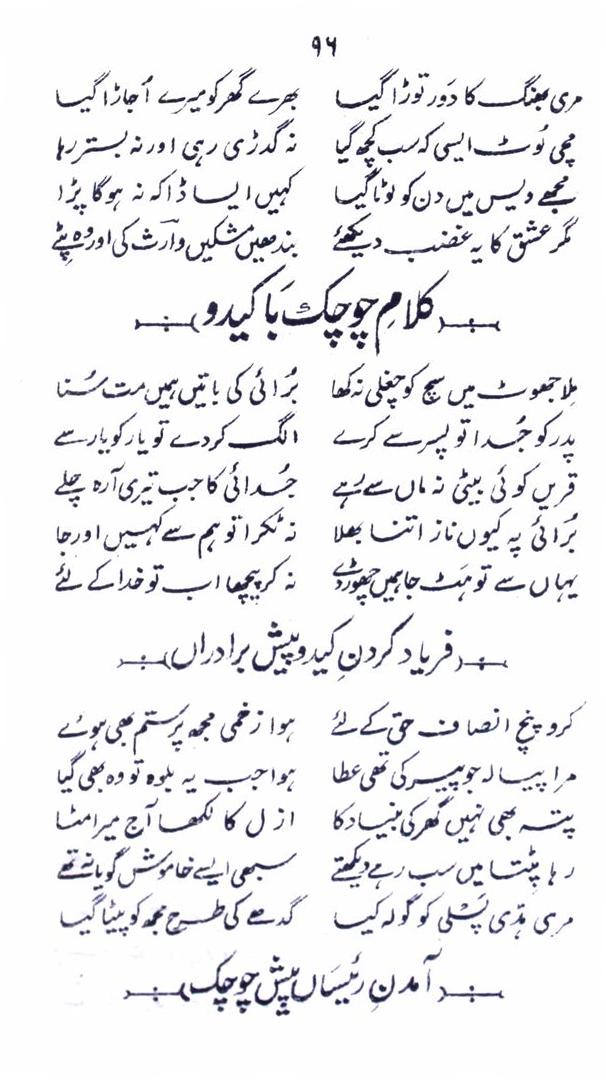 ۹۶
مری بھنگ کا دَور توڑا گیا بھرے گھر کو میرے اُجاڑا گیا
مچی لُوٹ ایسی کہ سب کچھ گیا نہ گدڑی رہی اور نہ بستر رہا
مجھے دیس میں دن کو لوٹا گیا کہیں ایسا ڈاکہ نہ ہوگا پڑا
مگر عشق کا یہ غضب دیکھئے بندھیں مشکیں وارثؔ کی اور وہ پٹے
کلامِ چوچک بَا کیدو
مِلا جھوٹ میں سچ کو چغلی نہ کھا بُرائی کی باتیں ہمیں مت سُنا
پدر کو جُدا تو پسر سے کرے الگ کر دے تو یار کو یار سے
قریں کوئی بیٹی نہ ماں سے رہے جُدائی کا جب تیری آرہ چلے
بُرائی پہ کیوں ناز اتنا بھلا نہ ٹکرا تو ہم سے کہیں اور جا
یہاں سے تو ہَٹ جا ہمیں چھوڑ دے نہ کر پیچھا اب تو خدا کے لئے
فریاد کردنِ کیدو پیش برادراں
کرو پنچ انصاف حق کے لئے ہوا زخمی مجھ پر ستم بھی ہوئے
مرا پیالہ جو پیر کی تھی عطا ہوا جب یہ بلوہ تو وہ بھی گیا
پتہ بھی نہیں گھر کی بنیاد کا ازل کا لکھا آج میرا مٹا
رہا پٹتا میں سب رہے دیکھتے سبھی ایسے خاموش گویا نہ تھے
مری ہڈی پسلی کو گولہ کیا گدھے کی طرح مجھ کو پیٹا گیا
آمدنِ رئیسَاں پیش چوچک